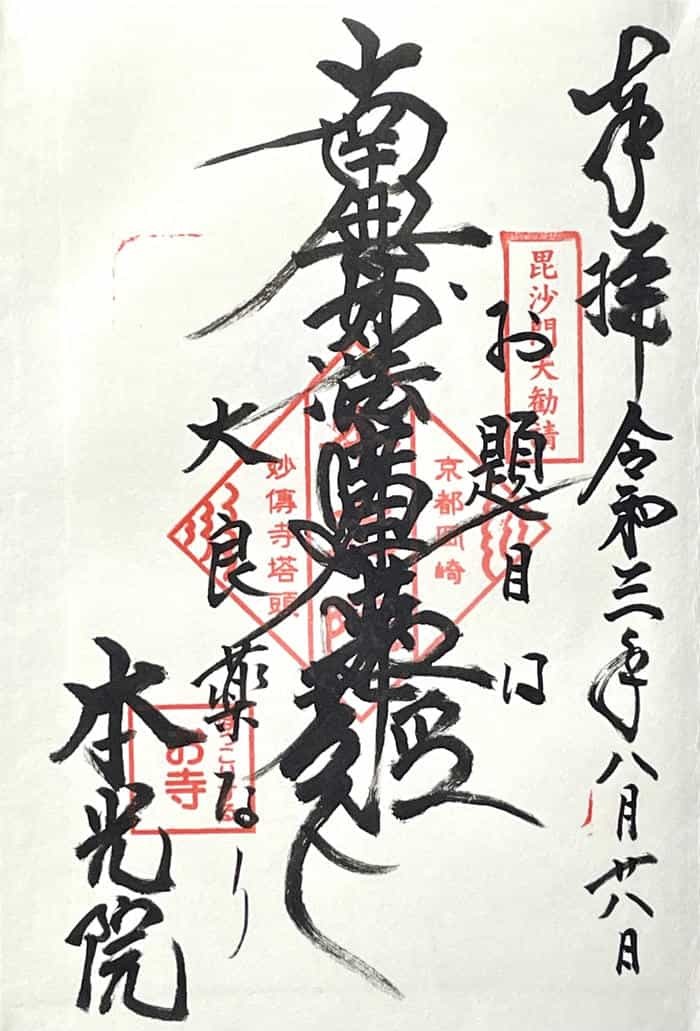 奉拝 令和三年八月廿八日
毘沙門天勧請
お題目は
京都岡崎
南無妙法蓮華経
妙傳寺塔頭
大良薬なり
お寺
本光院